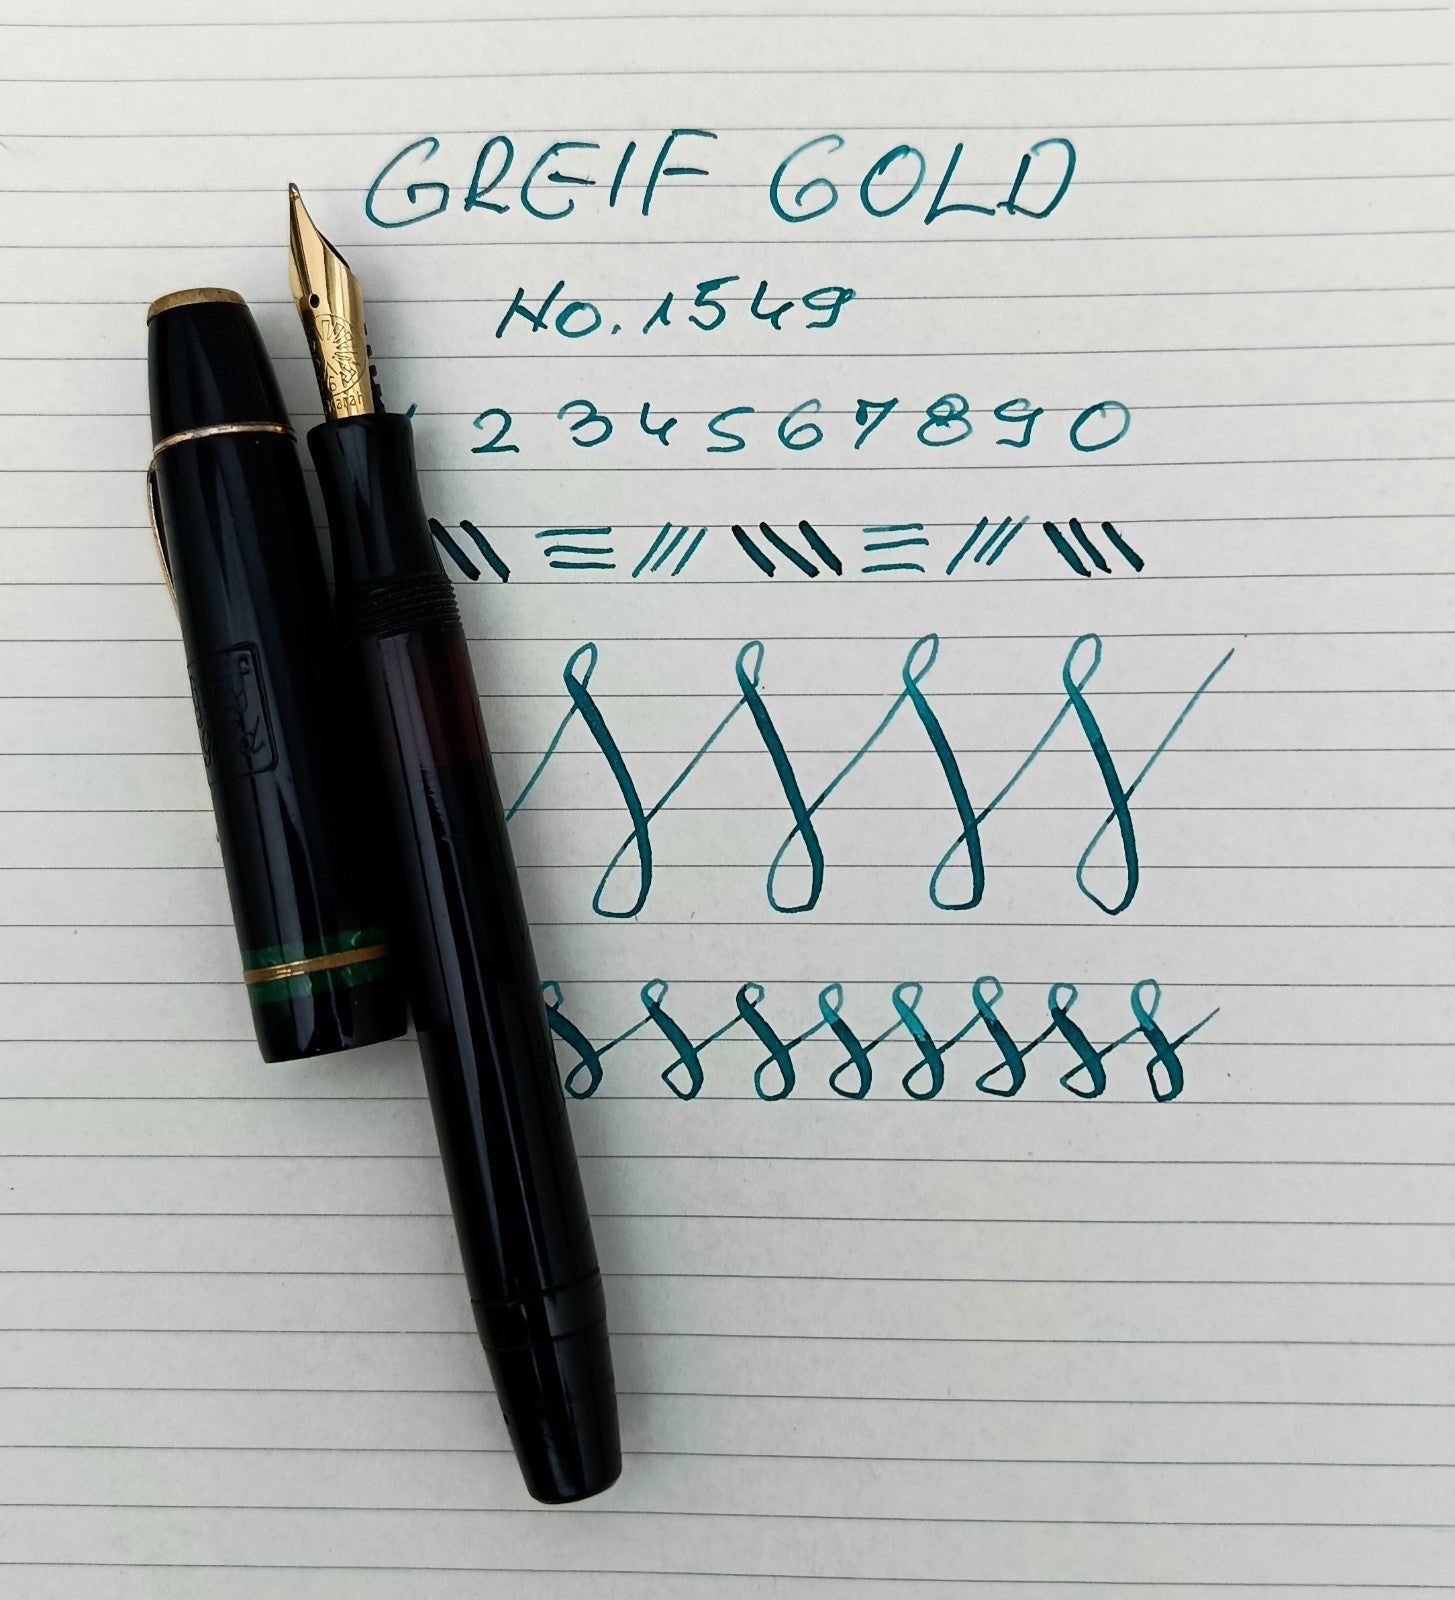 GREIF GOLD
No. 1549
2 3 4 5 6 7 8 9 0